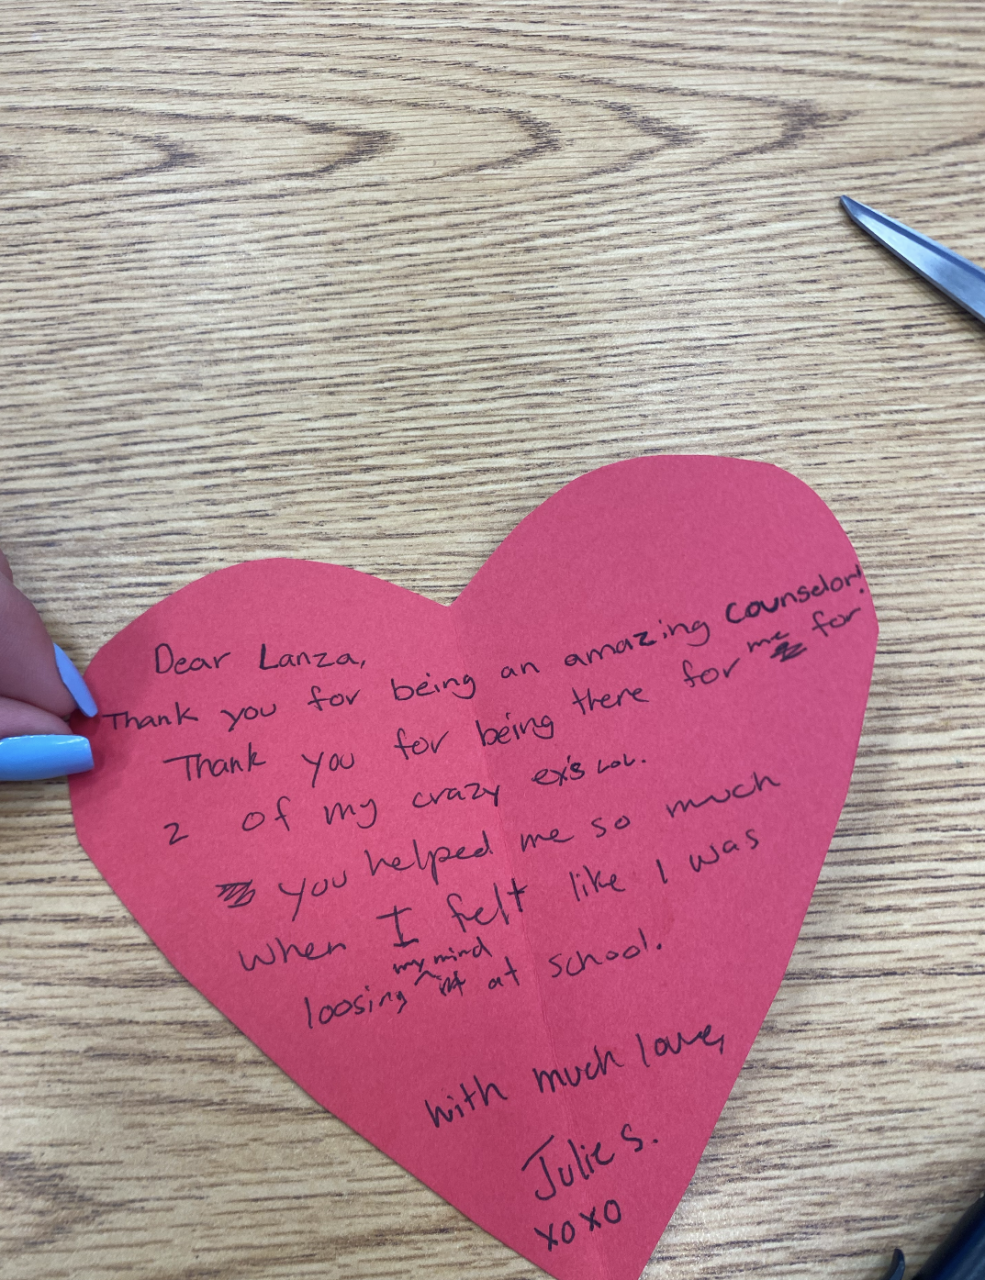 Dear Lanza,
Thank you for being an amazing counselor!
Thank you for being there for me for
2 of my crazy ex's LOL.
you helped me so much
when I felt like I was
loosing my mind at school.
with much love,
Julie S.
xoxo